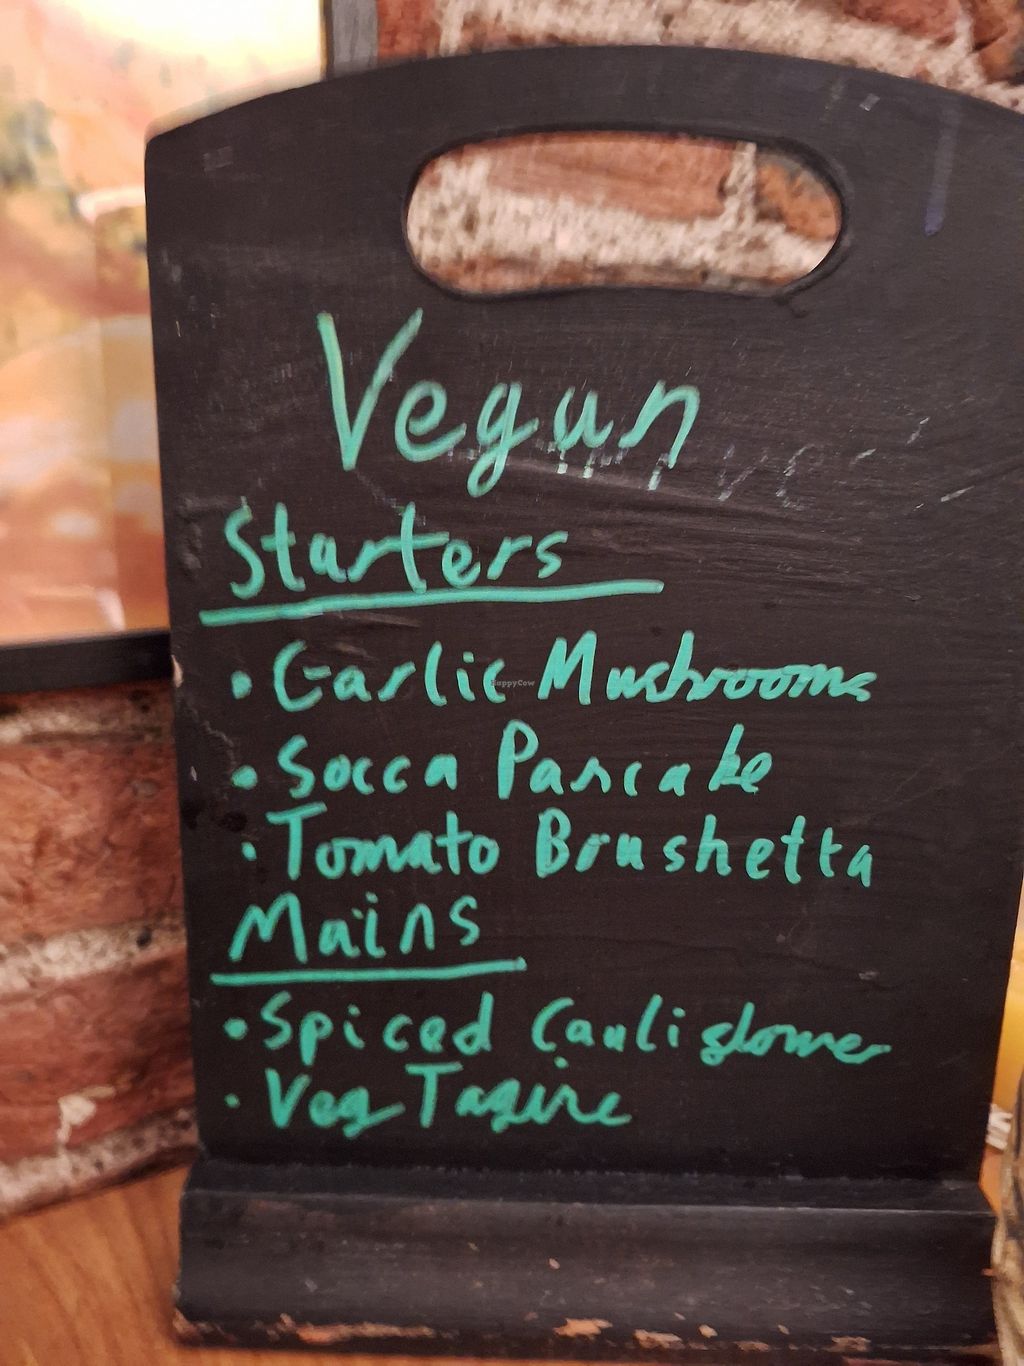 Vegan
Starters
• Garlic Mushrooms
• Socca Pancake
• Tomato Brushetta
Mains
• Spiced Cauliflower
• Veg Tagine
HappyCow